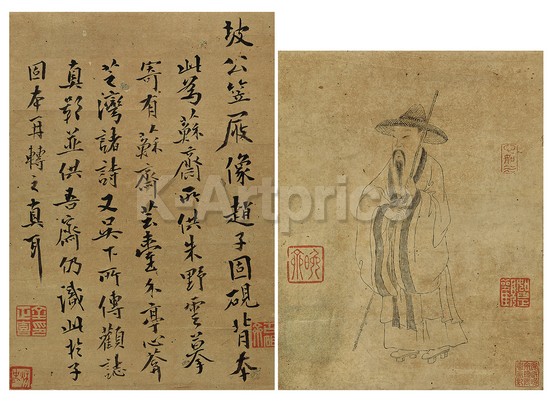 坡公笠屐像趙子固硯背本
此為蘇齋所供朱野雲摹
寄有蘇齋芸臺小亭心葊
芝灣諸詩又吳下所傳觀誌
真影並供吾齋仍識此於子
固本再轉之真耳
K-Artprice